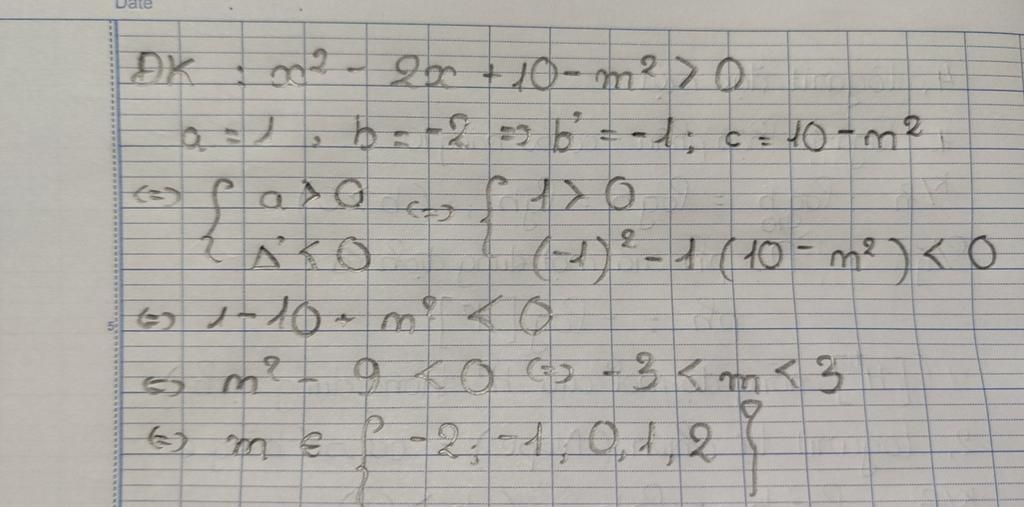 Date
ĐK : x² - 2x + 10 - m² > 0
a = 1 , b = -2 => b' = -1 ; c = 10 - m²
<=> { a > 0 <=> { 1 > 0
Δ' < 0 (-1)² - 1 (10 - m²) < 0
5
<=> 1 - 10 - m² < 0
<=> m² - 9 < 0 <=> -3 < m < 3
<=> m ∈ { -2 ; -1 ; 0 , 1 , 2 }